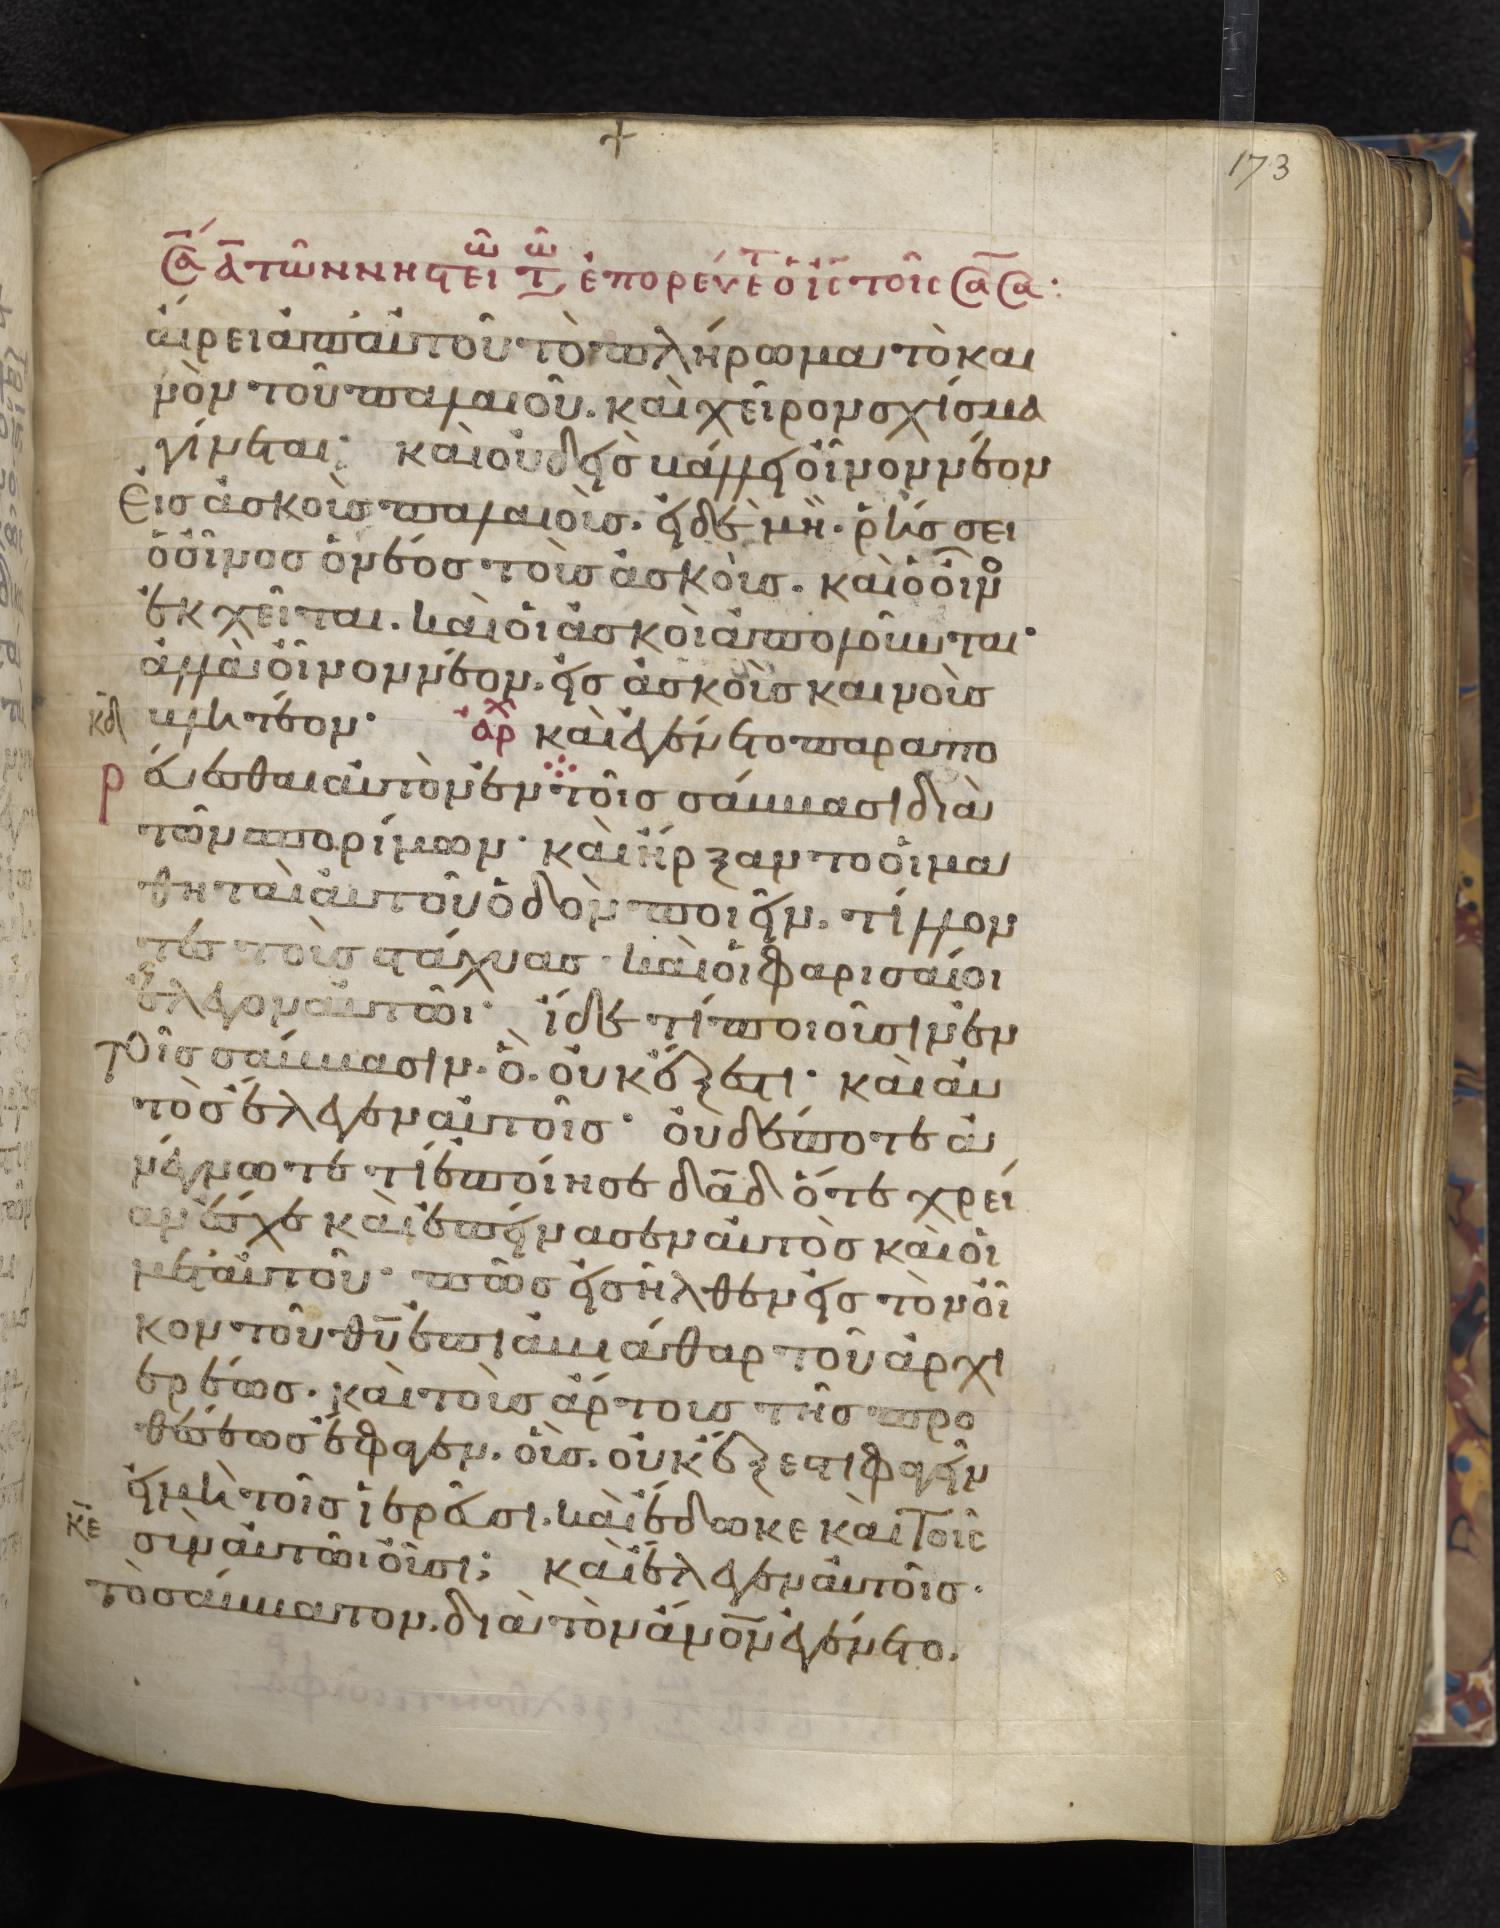 173
Σα α τῶν νηστει τω καιρῶ ἐπορεύετο ὁ ις τοῖς σασα:
αἴρει ἀπ αὐτοῦ τὸ πλήρωμα τὸ και
νὸν τοῦ παλαιοῦ. καὶ χεῖρον σχίσμα
γίνεται· καὶ οὐδεὶς βάλλει οἶνον νέον
Εἰς ἀσκοὺς παλαιοὺς. εἰ δὲ μὴ. ῥήσσει
ὁ οἶνος ὁ νέος τοὺς ἀσκοὺς. καὶ ὁ οἶνο
ἐκχεῖται. καὶ οἱ ἀσκοὶ ἀπολοῦνται·
ἀλλὰ οἶνον νέον. εἰς ἀσκοὺς καινοὺς
κδ βλητέον· ἀρχ καὶ ἐγένετο παραπο
ρεύεσθαι αὐτὸν ἐν τοῖς σάββασι διὰ
τῶν σπορίμων· καὶ ἤρξαντο οἱ μα
θηταὶ αὐτοῦ ὁδὸν ποιεῖν. τίλλον
τες τοὺς στάχυας· καὶ οἱ φαρισαίοι
ἔλεγον αὐτῶι· ἴδε τί ποιοῦσιν ἐν
τοῖς σάββασιν. ὃ. οὐκ ἔξεστι· καὶ αὐ
τὸς ἔλεγεν αὐτοῖς· οὐδέποτε ἀ
νέγνωτε τί ἐποίησε δᾱδ ὅτε χρεί
αν ἔσχε καὶ ἐπείνασεν αὐτὸς καὶ οἱ
μετ αὐτοῦ· πῶς εἰσῆλθεν εἰς τὸν οἶ
κον τοῦ θῡ ἐπὶ ἀβιάθαρ τοῦ ἀρχι
ερέως. καὶ τοὺς ἄρτους τῆς προ
θέσεως ἔφαγεν. οὓς. οὐκ ἔξεστι φαγεῖν
εἰ μὴ τοῖς ἱερεῦσι. καὶ ἔδωκε καὶ τοῖς
κε σὺν αὐτῶι οὖσι; καὶ ἔλεγεν αὐτοῖς·
τὸ σάββατον. διὰ τὸν ἄνον ἐγένετο.